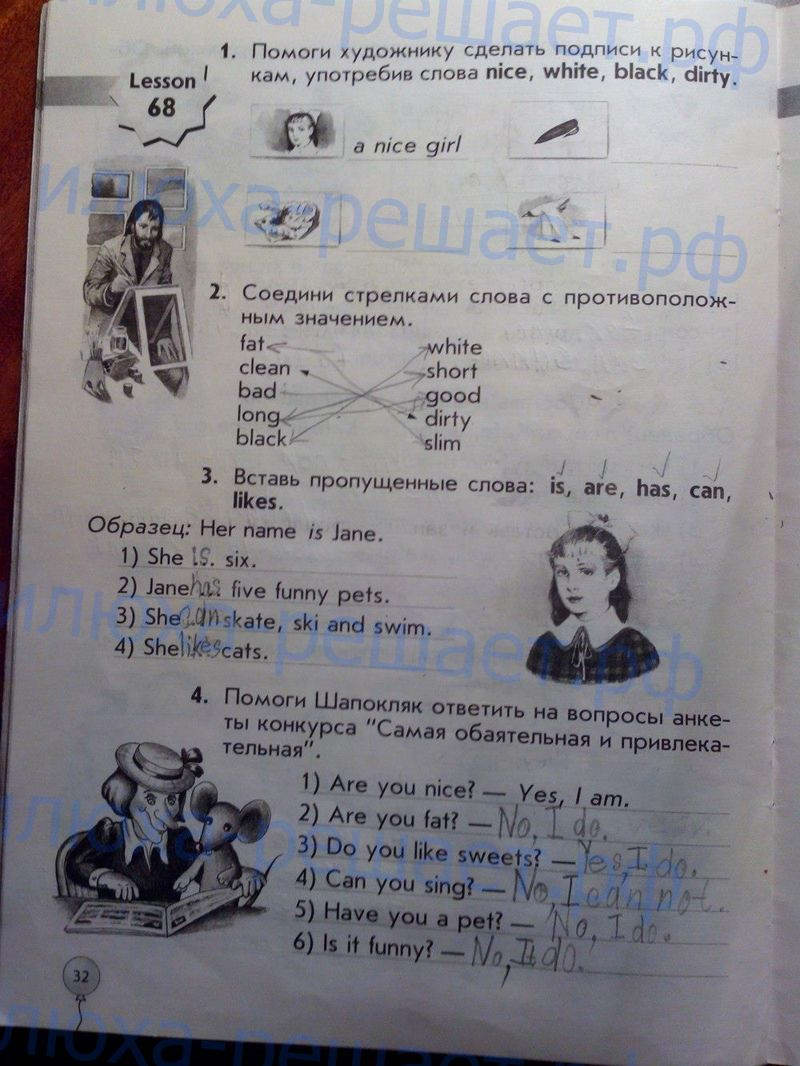 илюха-решает.рф
1. Помоги художнику сделать подписи к рисун-
кам, употребив слова nice, white, black, dirty.
Lesson
68
a nice girl
илюха-решает.рф
2. Соедини стрелками слова с противополож-
ным значением.
fat white
clean short
bad good
long dirty
black slim
3. Вставь пропущенные слова: is, are, has, can,
likes.
Образец: Her name is Jane.
1) She is. six.
2) Jane has five funny pets.
3) She can skate, ski and swim.
4) She likes cats.
илюха-решает.рф
4. Помоги Шапокляк ответить на вопросы анке-
ты конкурса "Самая обаятельная и привлека-
тельная".
1) Are you nice? — Yes, I am.
2) Are you fat? — No, I do.
3) Do you like sweets? — Yes, I do.
4) Can you sing? — No, I can not.
5) Have you a pet? — No, I do.
6) Is it funny? — No, I do.
илюха-решает.рф
32
илюха-решает.рф